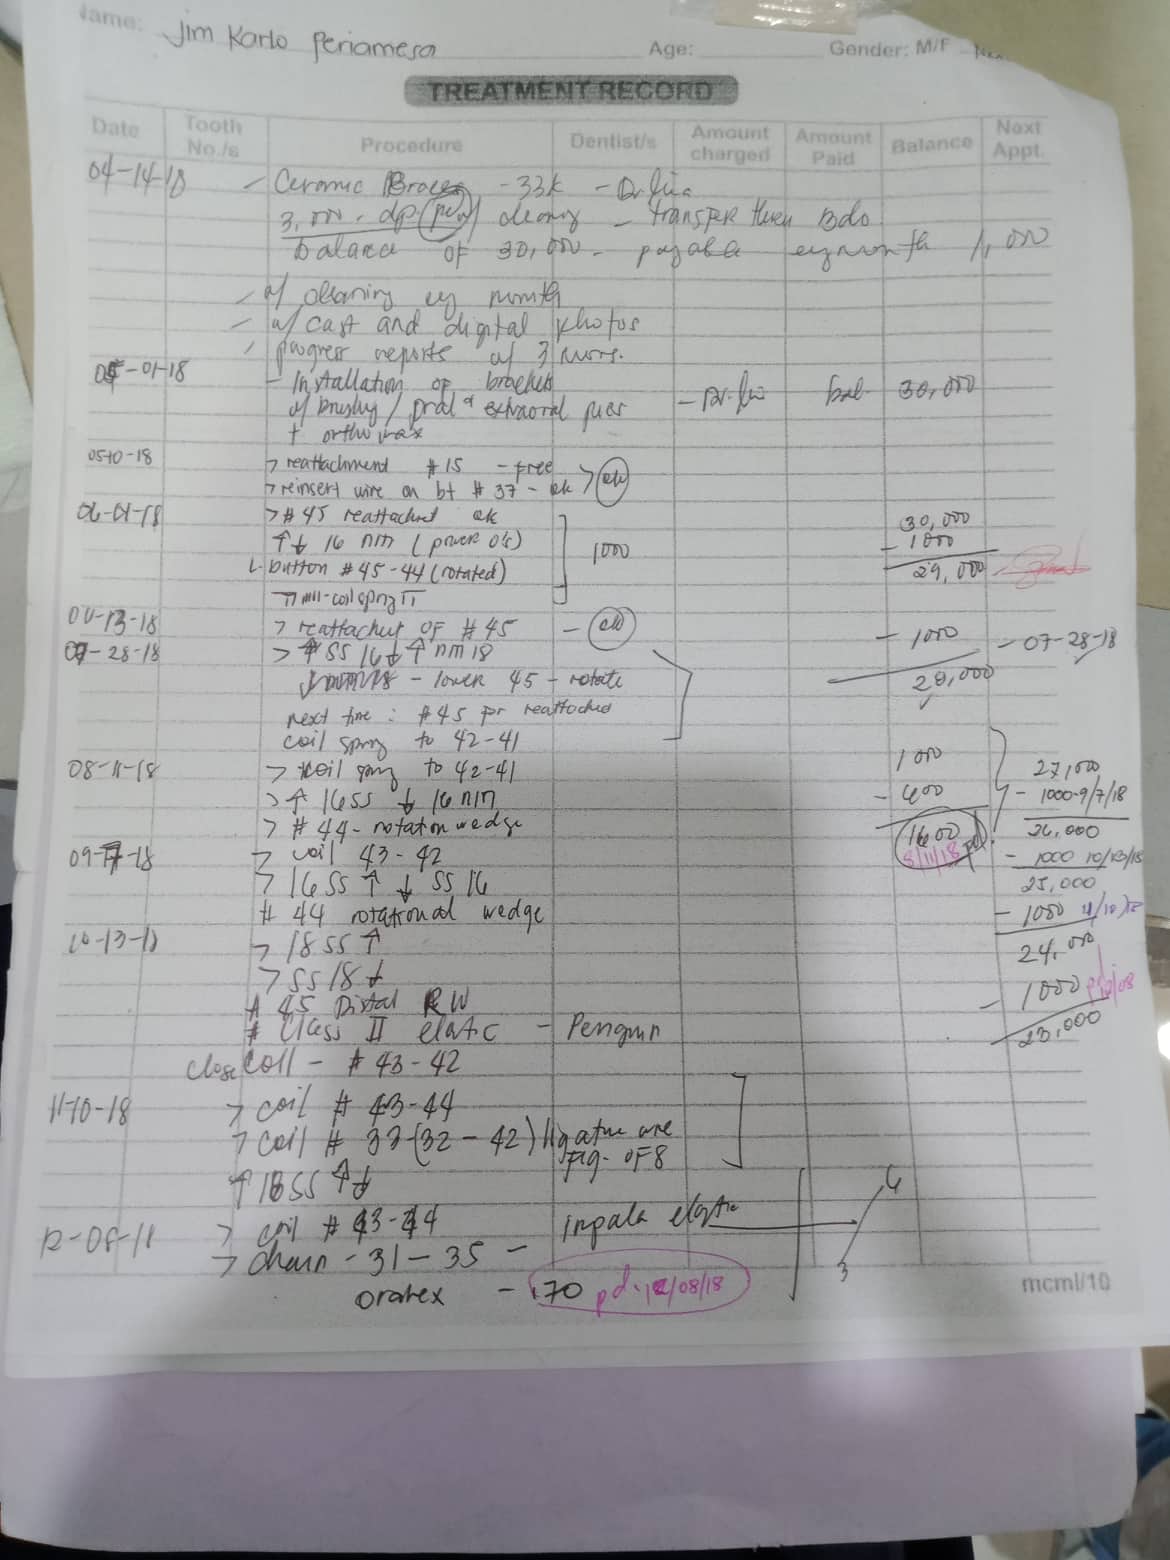 Name: Jim Karlo Periamesa Age: Gender: M/F
TREATMENT RECORD
Date Tooth No./s Procedure Dentist/s Amount charged Amount Paid Balance Next Appt.
04-14-18 - Ceramic Braces - 33k -
3,000 - dp (pd) cleaning - transfer thru Bdo
balance of 30,000 - payable 1,000
w/ cleaning month
w/ cast and digital photos
progress reports 3 mos.
05-01-18 - Installation of brackets bal. 30,000
w/ / oral & extraoral
+ ortho wax
05-10-18 > reattachment #15 - free
> reinsert wire on bt #37 - ok > ok
06-01-18 > #45 reattached ok 30,000
↑↓ 16 nm (power o's) 1000 - 1000
button #45-44 (rotated) 29,000
coil spring
-13-18 > reattached of #45 - 1000 - 07-28-18
07-28-18 > ↑ SS 16 ↓ ↑ nm 18 28,000
- lower 45 - rotate
next time: #45 for reattached
coil spring to 42-41
08-11-18 > coil spring to 42-41 1000 27,000
> ↑ 16ss ↓ 16 nm - 600 - 1000-9/7/18
> #44 - rotation wedge 1600 pd 8/11/18 26,000
09-7-18 > coil 43-42 - 1000 10/13/18
> 16SS ↑ ↓ SS 16 25,000
#44 rotational wedge - 1000 11/10/18
10-13-18 > 18 SS ↑ 24,000
> SS 18 ↓
#45 Distal RW - 1000
# Class II elastic - Penguin 23,000
close coil - #43-42
11-10-18 > coil #43-44
> coil #33 (32-42) ligature wire
fig. of 8
↑ 18SS ↑↓
12-08-18 > coil #43-44 impala elastic 6
> chain - 31-35 - 3
orabex - 170 pd. 12/08/18
mcml/10